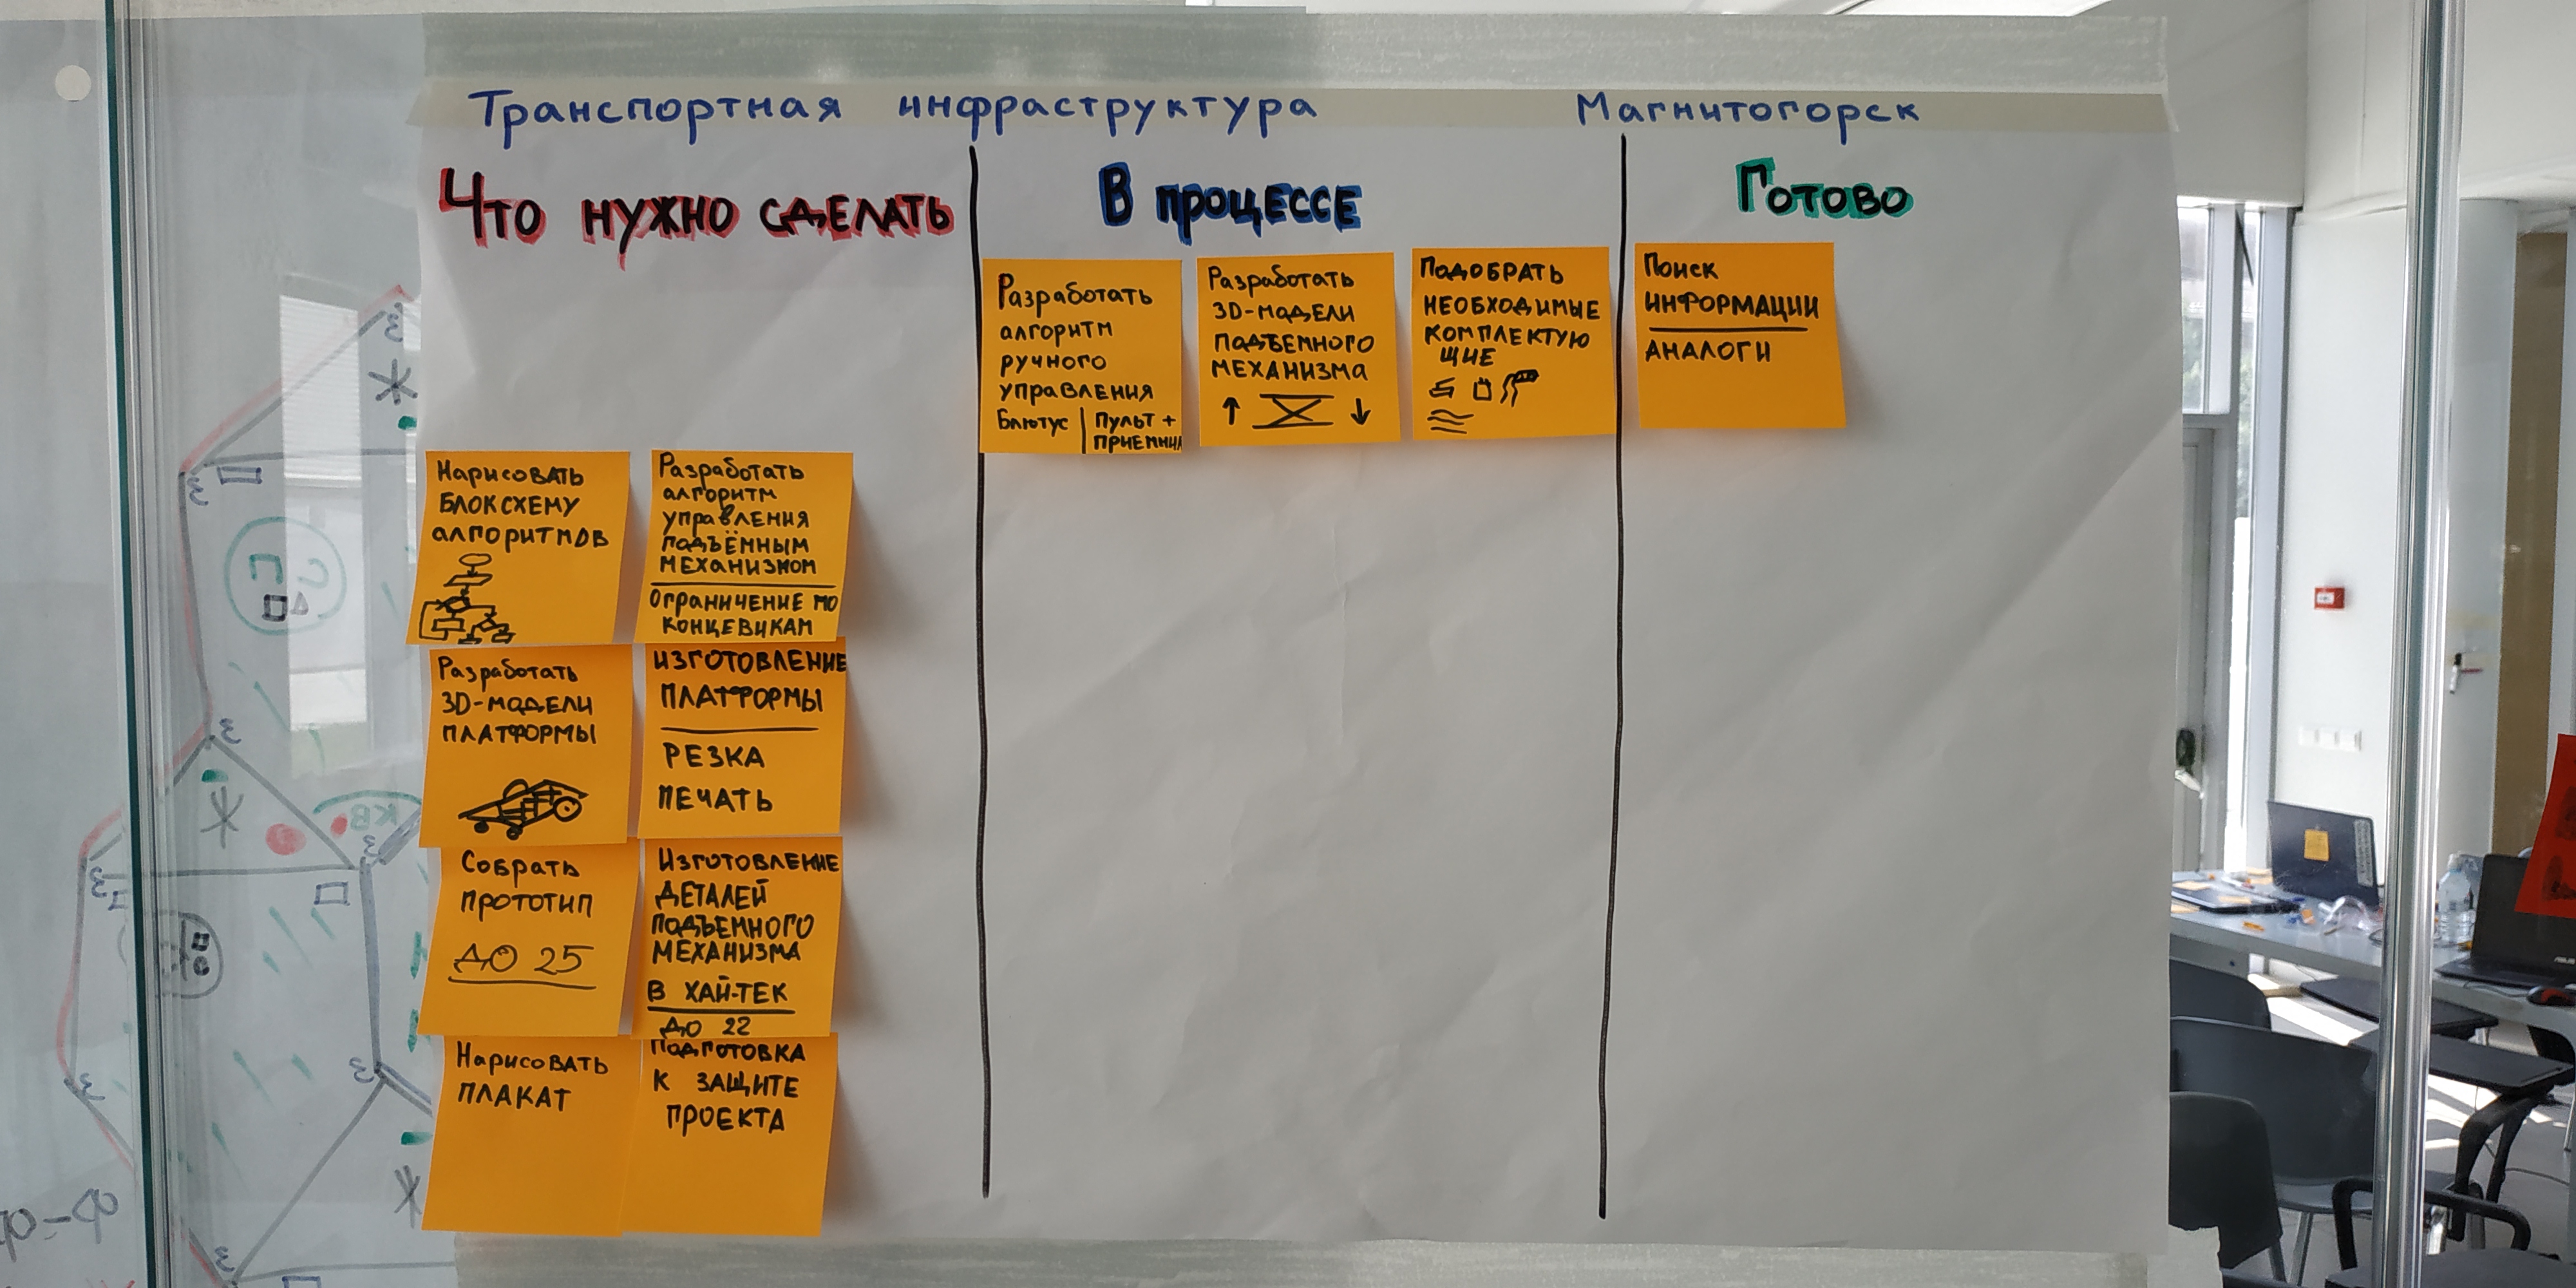 Транспортная инфраструктура Магнитогорск
Что нужно сделать
Нарисовать
блоксхему
алгоритмов
Разработать
алгоритм
управления
подъёмным
механизмом
Ограничение по
концевикам
Разработать
3D-модели
платформы
Изготовление
платформы
резка
печать
Собрать
прототип
до 25
Изготовление
деталей
подъемного
механизма
в хай-тек
до 22
Нарисовать
плакат
Подготовка
к защите
проекта
В процессе
Разработать
алгоритм
ручного
управления
Блютус | Пульт +
приемник
Разработать
3D-модели
подъемного
механизма
Подобрать
необходимые
комплектую
щие
Готово
Поиск
информации
аналоги